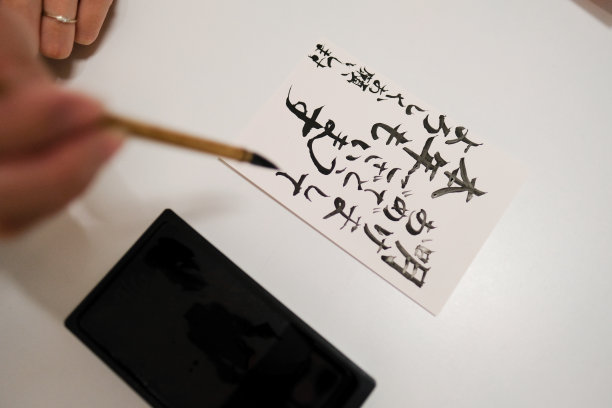 明けまして
おめでとう
ございます
本年も
よろしくお願い
します